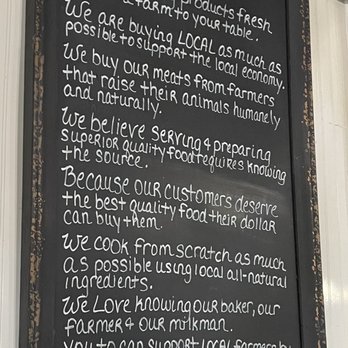 products fresh
farm to your table.
We are buying LOCAL as much as
possible to support the local economy.
We buy our meats from farmers
that raise their animals humanely
and naturally.
We believe serving & preparing
superior quality food requires knowing
the source.
Because our customers deserve
the best quality food their dollar
can buy them.
We cook from scratch as much
as possible using local all-natural
ingredients.
We Love knowing our baker, our
farmer & our milkman.
you to can support local farmers by